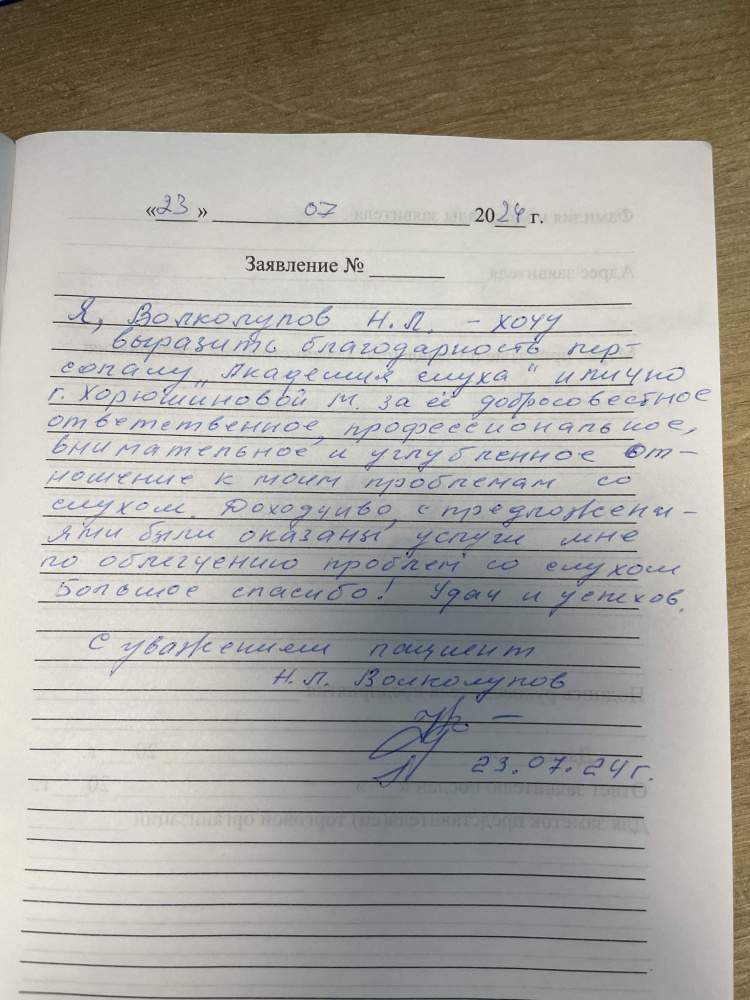 «23» 07 2024 г.
Заявление №
Я, Волколупов Н.Л. – хочу
выразить благодарность пер-
соналу „Академия слуха" и лично
г. Хорюшиновой М. за её добросовестное
ответственное, профессиональное,
внимательное и углубленное от-
ношение к моим проблемам со
слухом. Доходчиво, с предложени-
ями были оказаны услуги мне
по облегчению проблем со слухом
Большое спасибо! Удач и успехов.
С уважением пациент
Н.Л. Волколупов
23.07.24г.